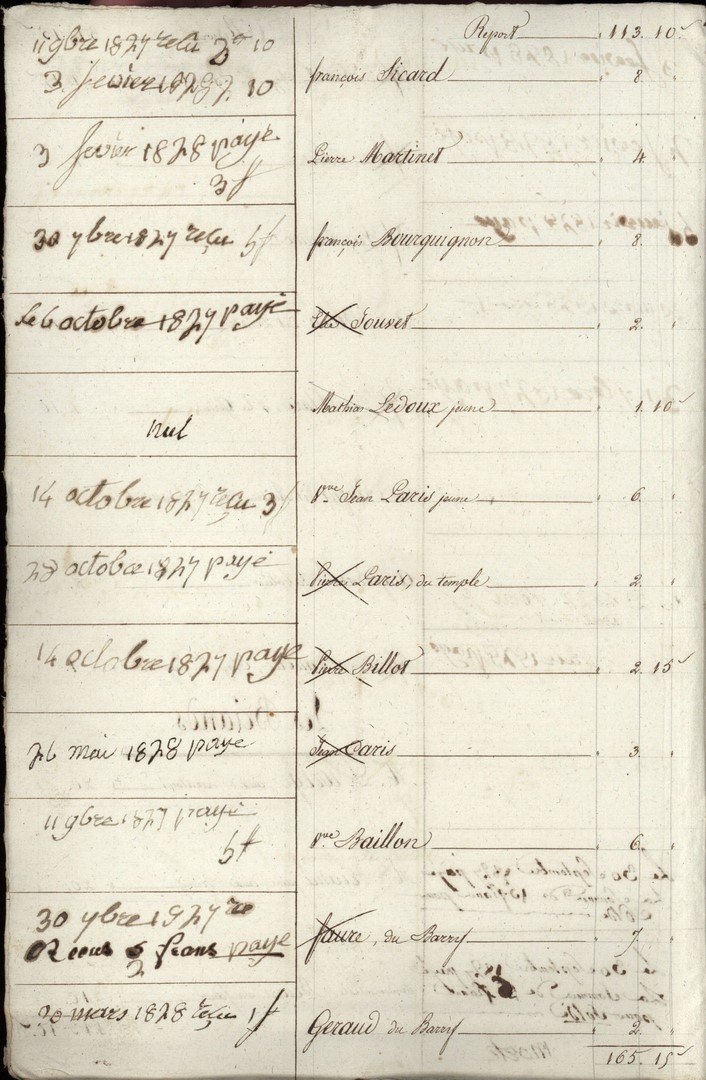 Report 113. 10
11 gbre 1827 recu 3# 10
3 fevrier 1828 3. 10
françois Sicard 8. "
3 fevrier 1828 payé
3#
Pierre Martinet 4. "
30 ybre 1827 reçu 5#
françois Bourguignon 8. "
le 6 octobre 1827 payé
Jouvet 2. "
Mathieu Ledoux jeune 1. 10
nul
14 octobre 1827 reçu 3#
Vve Jean Paris jeune 6. "
28 octobre 1827 payé
Pierre Paris, du temple 2. "
14 octobre 1827 payé
Pierre Billot 2. 15
26 mai 1828 payé
Jean Paris 3. "
11 gbre 1827 payé
5#
Vve Baillon 6. "
30 ybre 1827 re
frans payé
faure, du Barry 7. "
30 mars 1828 reçu 1#
Geraud du Barry 2. "
165. 15